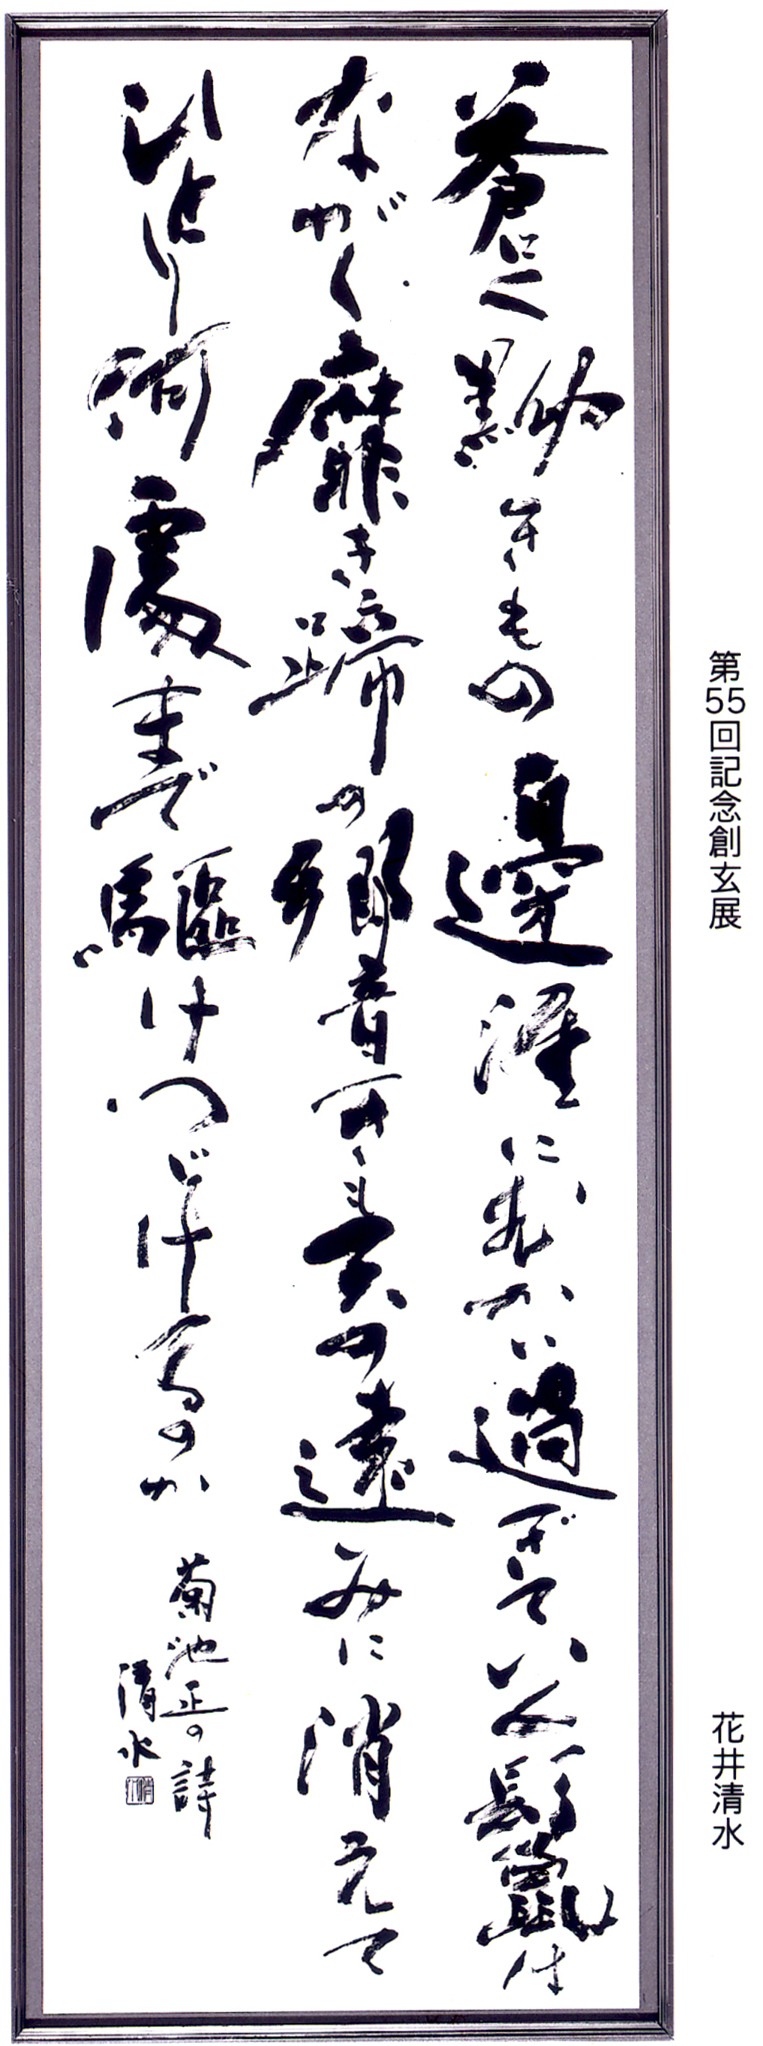 第55回記念創玄展
花井清水
蒼く黝きもの邊涯にむかい過ぎてい 鬣は
ながく靡き蹄の響きも天の遠みに消えて
ひとり何處まで驅けつづけるのか
菊池正の詩
清水